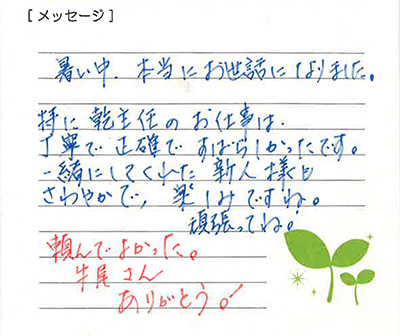 [ メッセージ ]
暑い中、本当にお世話になりました。
特に乾主任のお仕事は
丁寧で正確ですばらしかったです。
一緒にしてくれた新人様も
さわやかで、楽しみですね。
頑張ってね!
頼んでよかった。
牛尾さん
ありがとう!